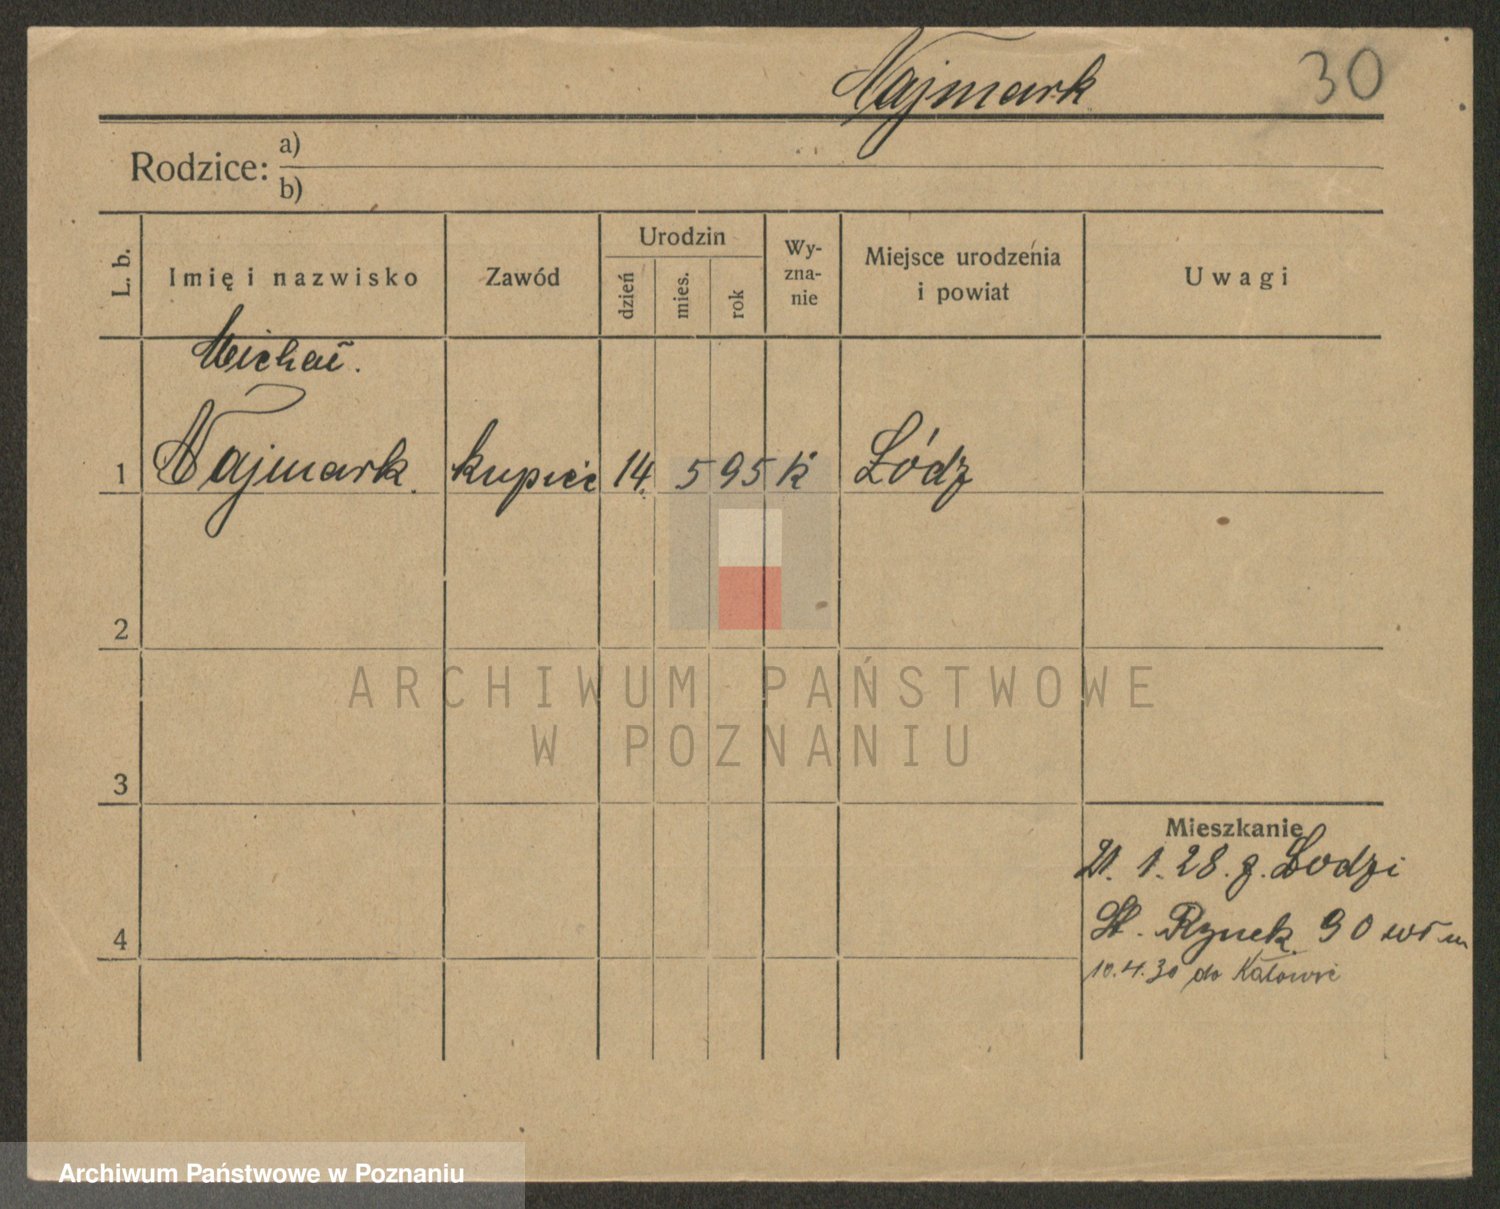 Najmark 30
Rodzice: a)
b)
L. b. Imię i nazwisko Zawód Urodzin dzień mies. rok Wy-zna-nie Miejsce urodzenia i powiat Uwagi
Michał.
1 Najmark. kupiec 14. 5 95 K Łódz
2
3
4
Mieszkanie
21. 1. 28. z. Łodzi
St. Rynek 90
10.4.30 do Katowic
ARCHIWUM PAŃSTWOWE
W POZNANIU
Archiwum Państwowe w Poznaniu